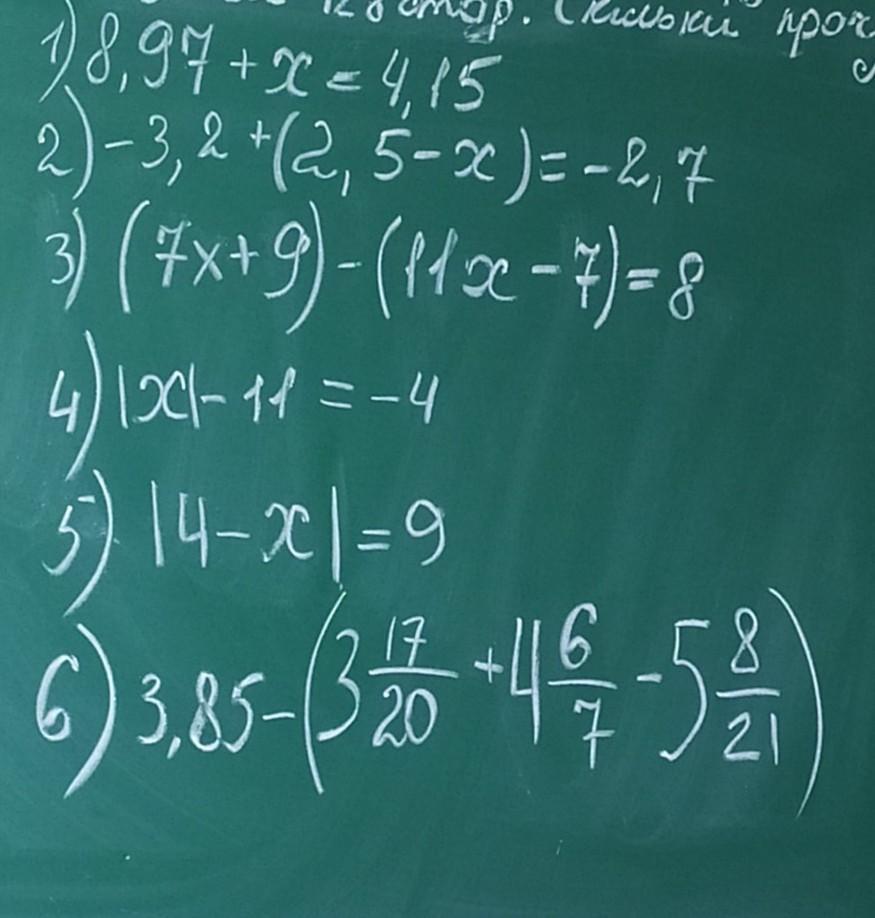 128 стор. Скільки
1) 8,97 + x = 4,15
2) -3,2 + (2,5 - x) = -2,7
3) (7x + 9) - (11x - 7) = 8
4) |x| - 11 = -4
5) |4 - x| = 9
6) 3,85 - (3 17/20 + 4 6/7 - 5 8/21)